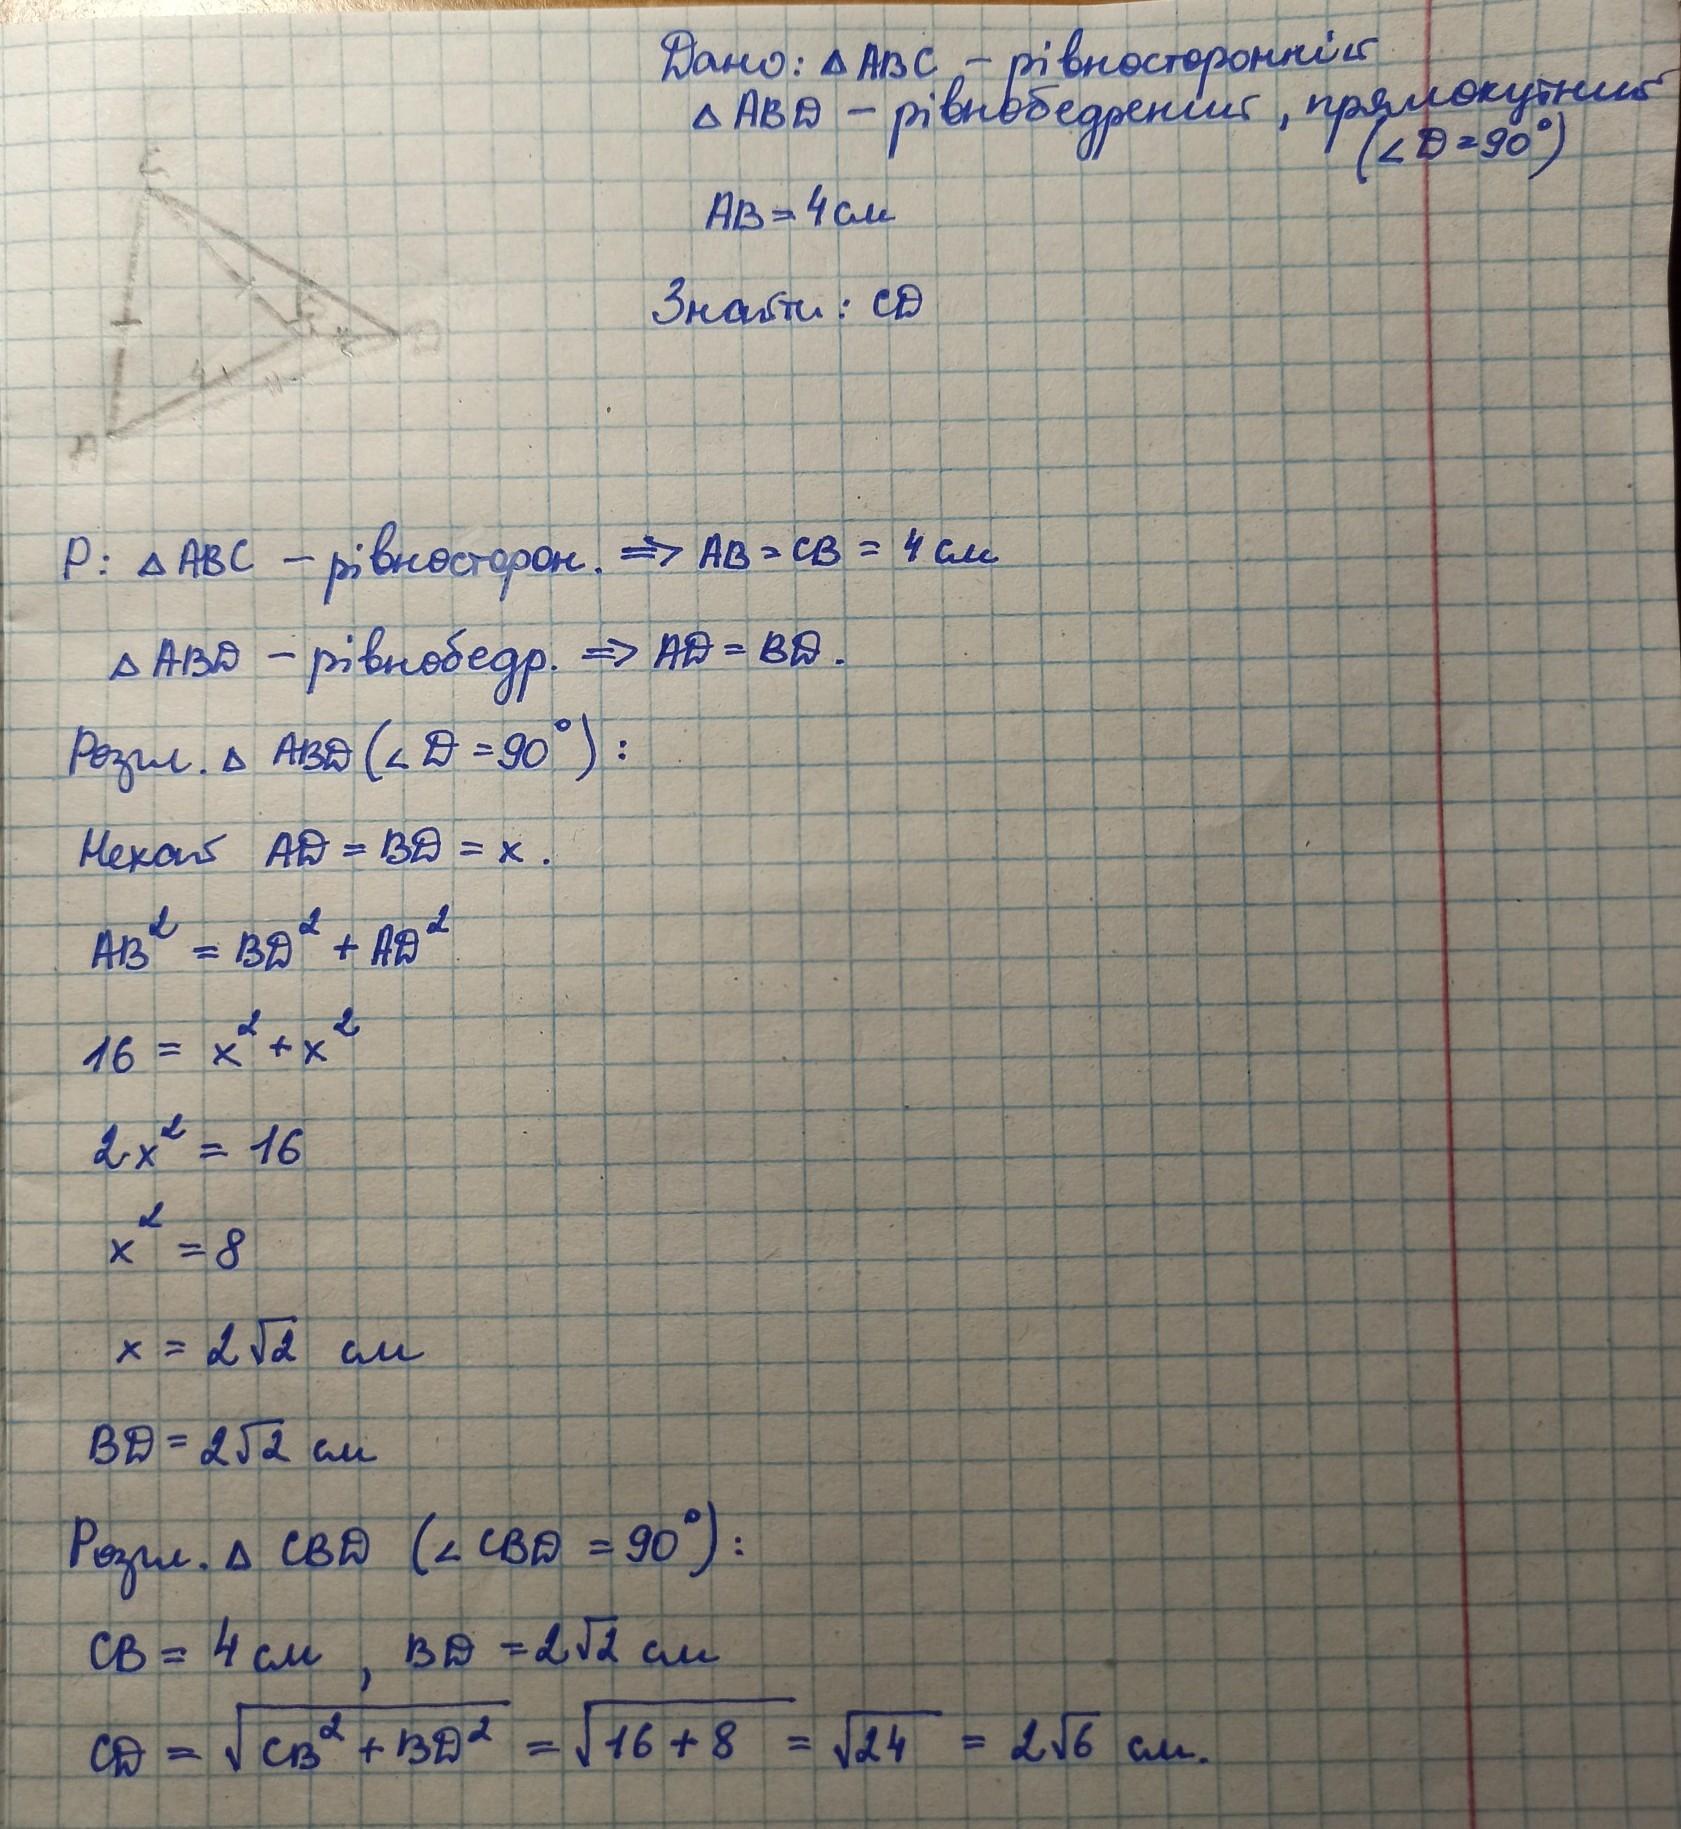 Дано: △ABC – рівносторонній
△ABD – рівнобедрений, прямокутний
(∠D=90°)
AB = 4 см
Знайти: CD
C
B
4
D
A
Р: △ABC – рівносторон. => AB = CB = 4 см
△ABD – рівнобедр. => AD = BD.
Розгл. △ ABD (∠D = 90°):
Нехай AD = BD = x.
AB² = BD² + AD²
16 = x² + x²
2x² = 16
x² = 8
x = 2√2 см
BD = 2√2 см
Розгл. △ CBD (∠CBD = 90°):
CB = 4 см, BD = 2√2 см
CD = √CB² + BD² = √16 + 8 = √24 = 2√6 см.